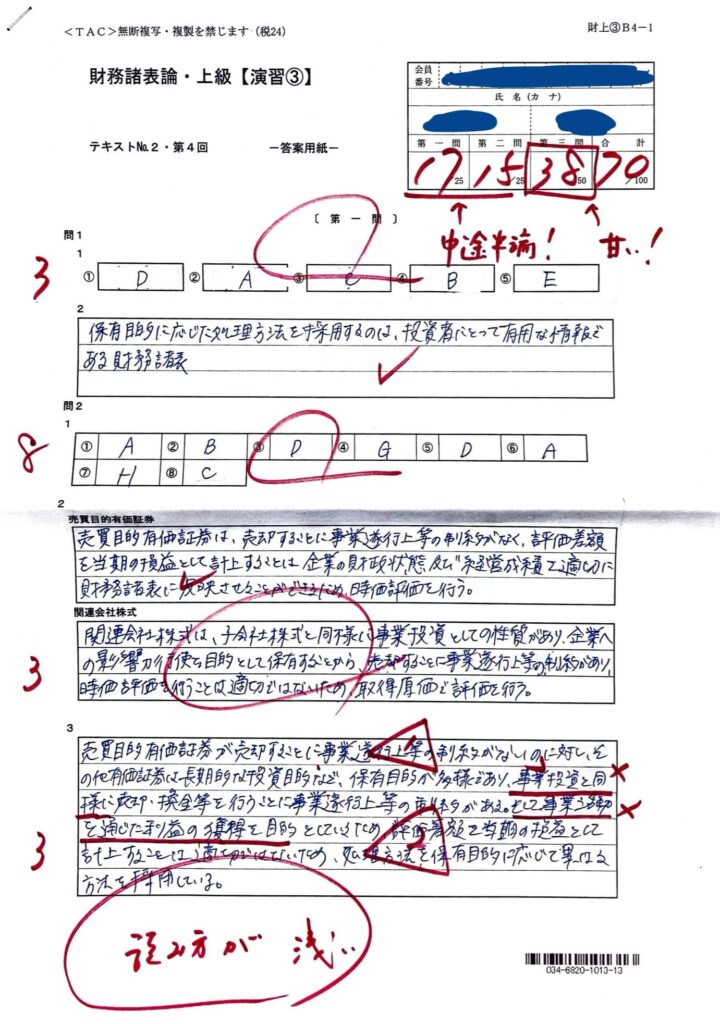 <TAC>無断複写・複製を禁じます（税24）
財上③B4－1
財務諸表論・上級【演習③】
会員番号
氏名（カナ）
テキストNo.2・第4回　－答案用紙－
第一問 第二問 第三問 合計
17/25 15/25 38/50 70/100
中途半端！ 甘い！
〔第一問〕
問1
1
3
① D ② A ③ C ④ B ⑤ E
2
保有目的に応じた処理方法を採用するのは、投資者にとって有用な情報で
ある財務諸表
問2
1
8
① A ② B ③ D ④ G ⑤ D ⑥ A
⑦ H ⑧ C
2
売買目的有価証券
売買目的有価証券は、売却することに事業遂行上等の制約がなく、評価差額
を当期の損益として計上することは企業の財政状態及び経営成績を適切に
財務諸表に反映させることができるため、時価評価を行う。
関連会社株式
関連会社株式は、子会社株式と同様に事業投資としての性質があり、企業への
影響力の行使を目的として保有することから、売却することに事業遂行上等の制約があり、
時価評価を行うことは適切ではないため、取得原価で評価を行う。
3
3
売買目的有価証券が売却することに事業遂行上等の制約がないのに対し、そ
の他有価証券は長期的な投資目的など、保有目的が多様であり、事業投資と同
様に売却・換金等を行うことに事業遂行上等の制約がある。そして事業活動
を通じた利益の獲得を目的としているため、評価差額を当期の損益として
計上することは適切ではないため、処理方法を保有目的に応じて異なる
方法を採用している。
1
2
3
読み方が 浅い
034-6820-1013-13